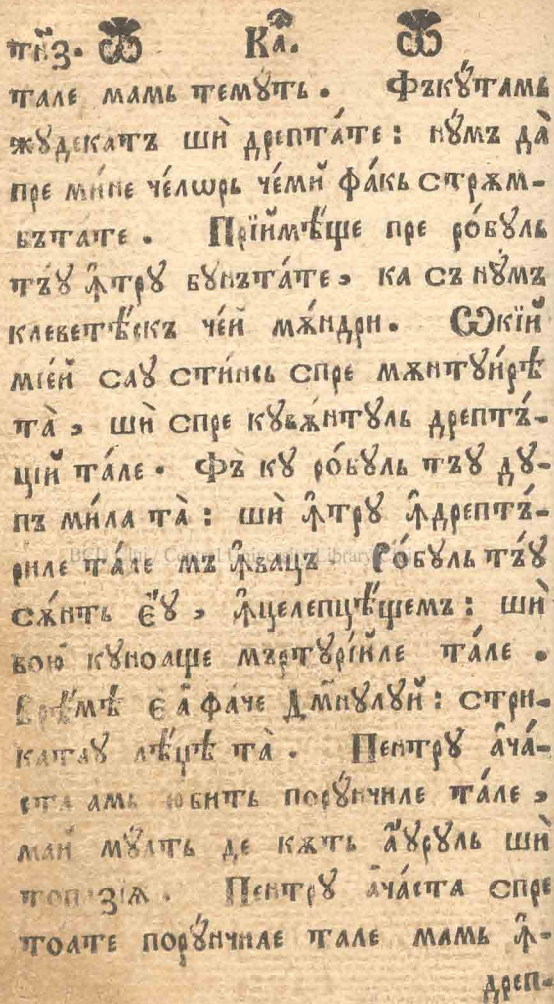 тн҃з. Ѿ Ка҃. Ѿ
тале мамь темꙋ́ть. Фъкꙋ́тамь
жꙋдекатъ шѝ дрептáте: нꙋ́мъ дà
пре мѝне чéлѡрь чéмй фáкь стрѫм-
бътáте. Прїймѣ́ще пре рóбꙋль
тъ́ꙋ ꙟ҆трꙋ бꙋнътáте, ка съ нꙋ́мъ
клеветѣ́скъ чéй мѫ́ндри. Ѡкїй
мїéй саꙋ сти́нсь спре мѫнтꙋи́рѣ
тà, шѝ спре кꙋвѫ́нтꙋль дрептъ́-
цїй тáле. Фъ̀ кꙋ рóбꙋль тъꙋ дꙋ-
пъ ми́ла тà: шѝ ꙟ҆трꙋ ꙟ҆дрептъ́-
риле тáле мъ ꙟ҆вацъ. Рóбꙋль тъ́ꙋ
сѫ́нть є҆́ꙋ, ꙟ҆целепцѣ́щемь: шѝ
вою̀ кꙋноаще мъртꙋрі́йле тáле.
Врѣ́мѣ є҆ а҆̀ фáче дм҃нꙋлꙋй: стри-
катаꙋ лѣ́цѣ тà. Пентрꙋ а҆чá-
ста амь юбить порꙋ́нчиле тáле,
май мꙋ́лть де кѫть а҆́ꙋрꙋль шѝ
топазїѧ. Пентрꙋ а҆чáста спре
тоате порꙋ́нчиле тале мамь ꙟ҆-
дреп-
BCU Cluj / Central University Library Cluj